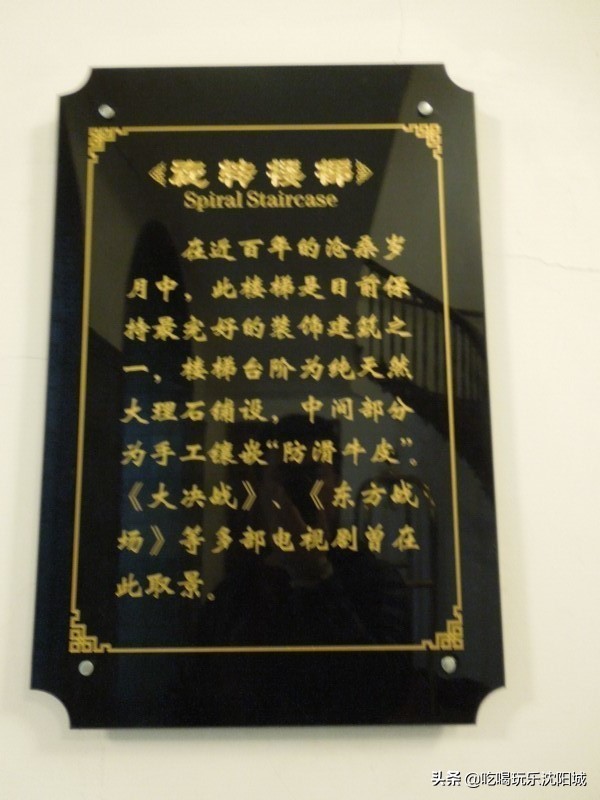 《旋转楼梯》
Spiral Staircase
在近百年的沧桑岁
月中，此楼梯是目前保
持最完好的装饰建筑之
一，楼梯台阶为纯天然
大理石铺设，中间部分
为手工镶嵌“防滑牛皮”。
《大决战》、《东方战
场》等多部电视剧曾在
此取景。
头条 @吃喝玩乐沈阳城